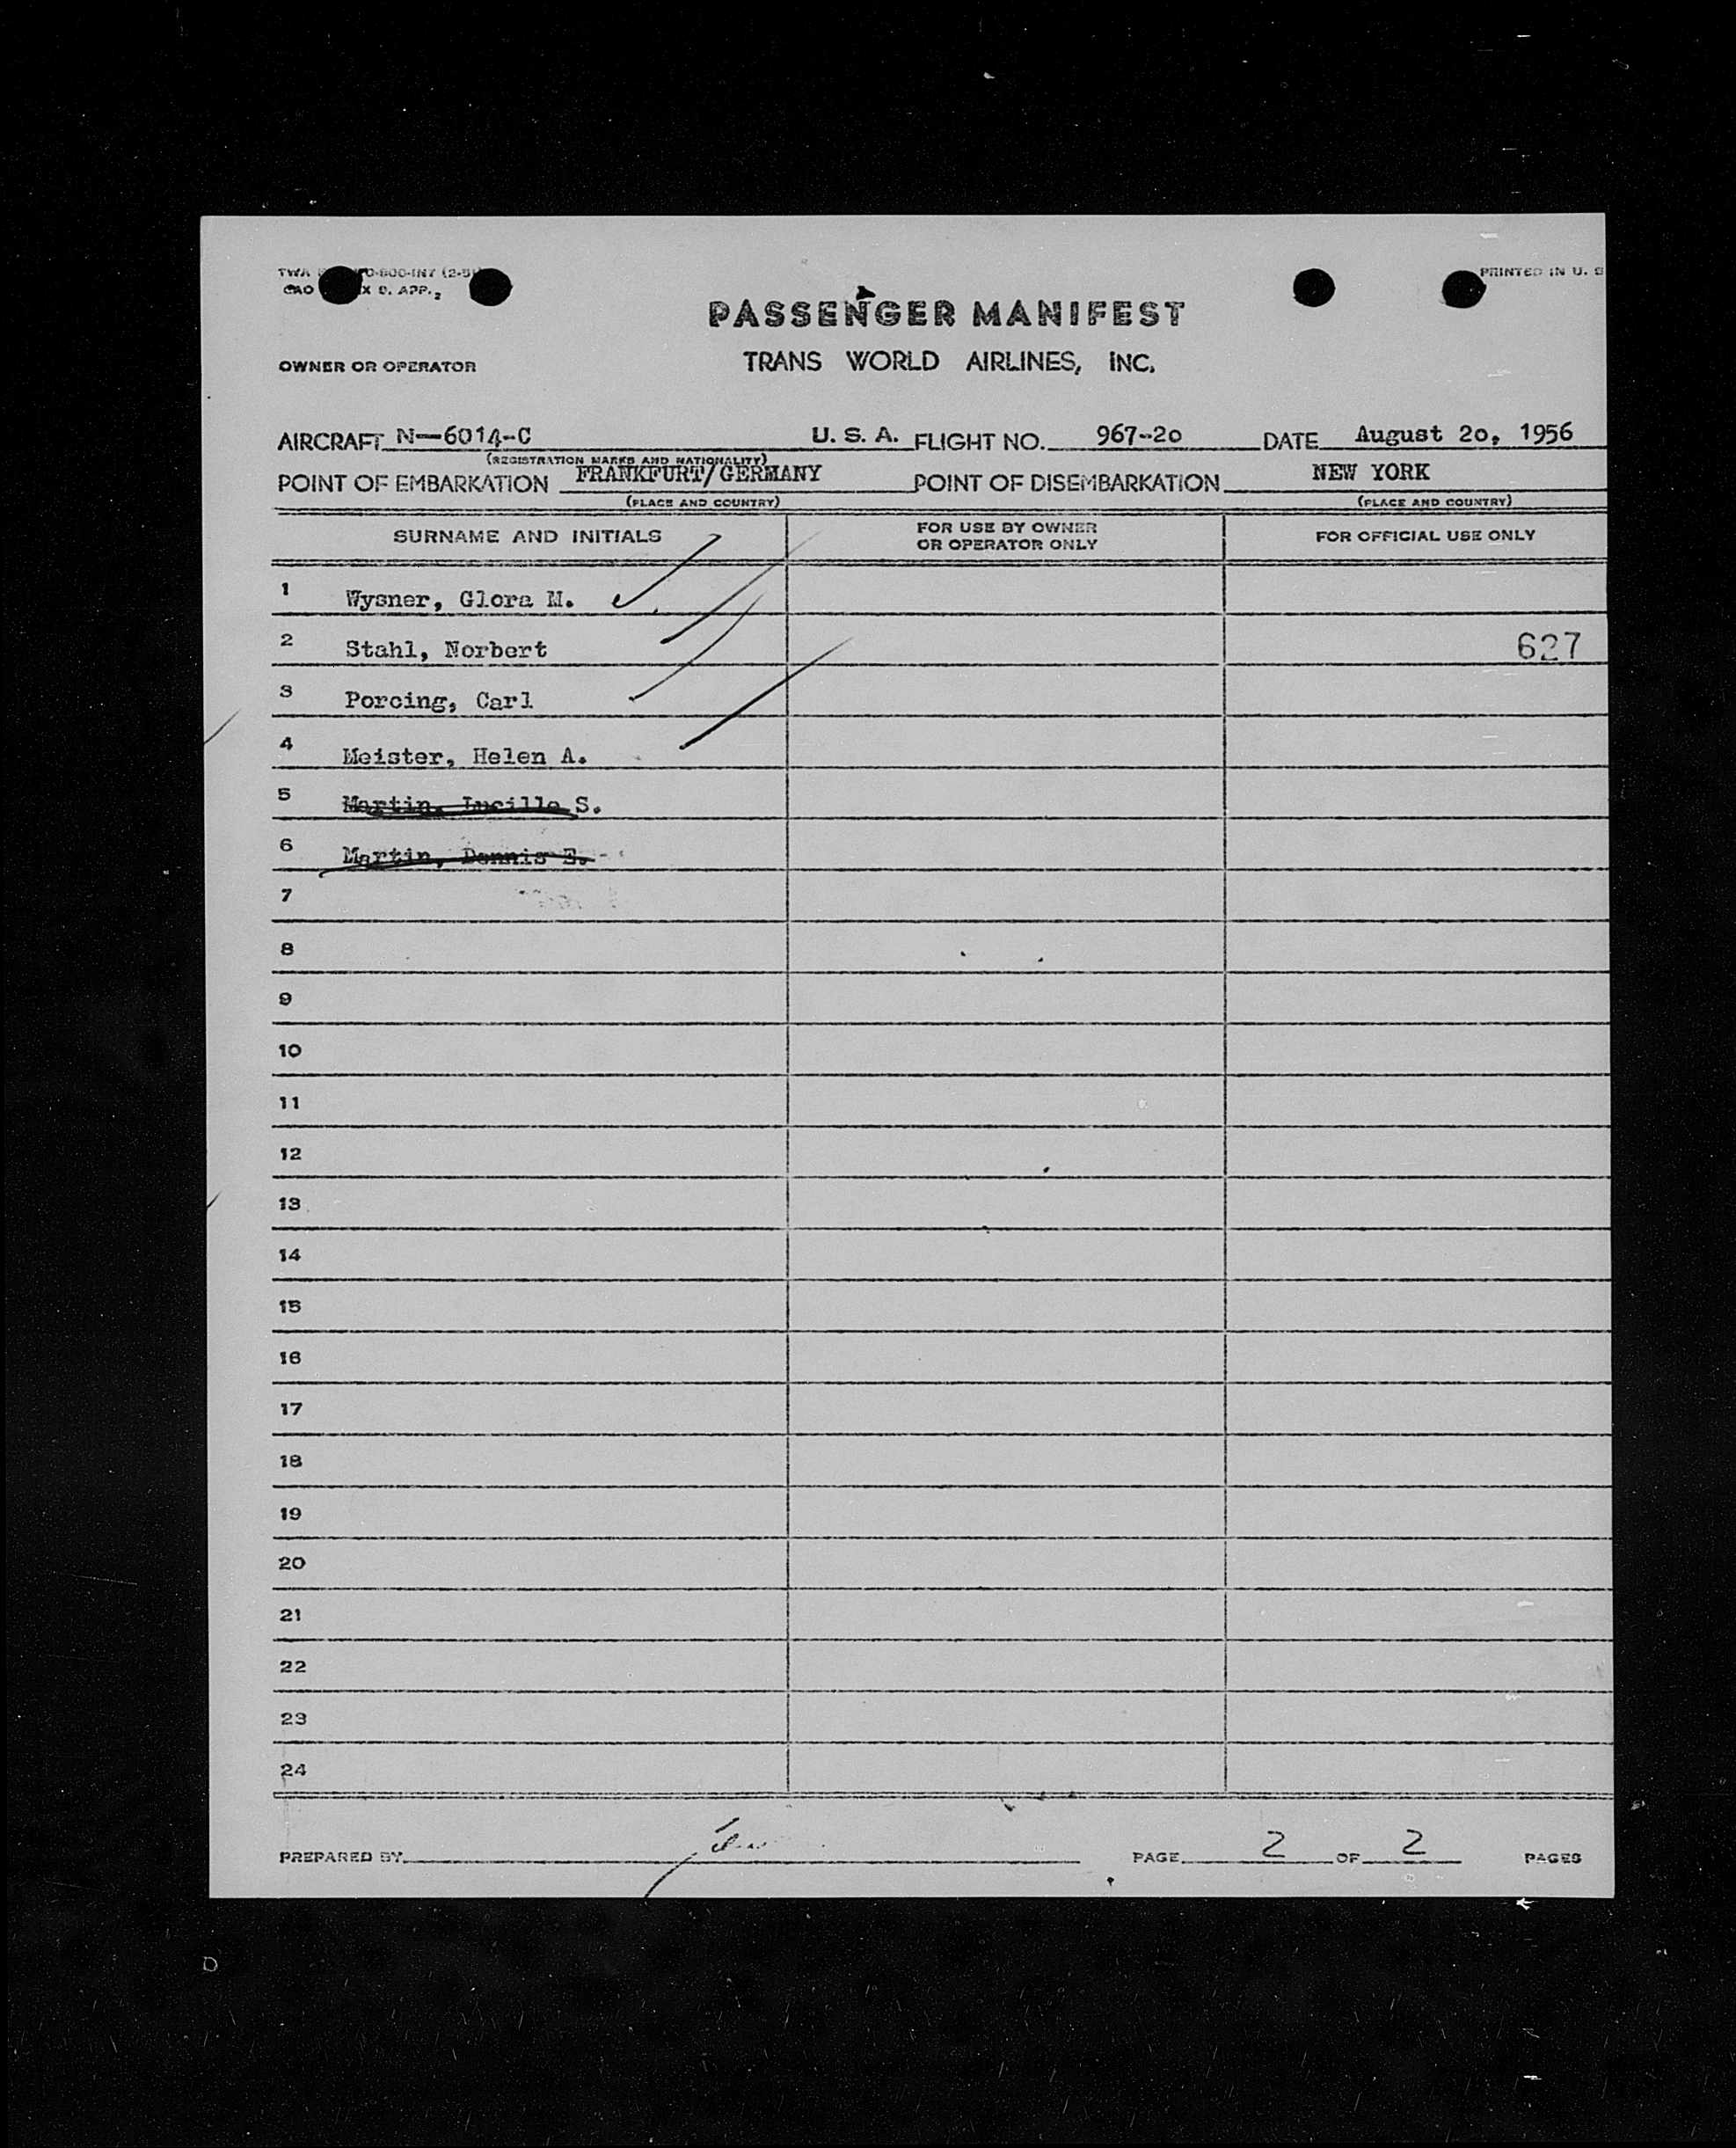 TWA
PRINTED IN U. S
CAO X 9. APP. 2
PASSENGER MANIFEST
OWNER OR OPERATOR TRANS WORLD AIRLINES, INC.
AIRCRAFT N-6014-C U. S. A. FLIGHT NO. 967-20 DATE August 20, 1956
(REGISTRATION MARKS AND NATIONALITY)
POINT OF EMBARKATION FRANKFURT/GERMANY POINT OF DISEMBARKATION NEW YORK
(PLACE AND COUNTRY) (PLACE AND COUNTRY)
SURNAME AND INITIALS FOR USE BY OWNER OR OPERATOR ONLY FOR OFFICIAL USE ONLY
1 Wysner, Glora M.
2 Stahl, Norbert 627
3 Porcing, Carl
4 Meister, Helen A.
5 Martin, Lucille S.
6 Martin, Dennis E.
7
8
9
10
11
12
13
14
15
16
17
18
19
20
21
22
23
24
PREPARED BY PAGE 2 OF 2 PAGES